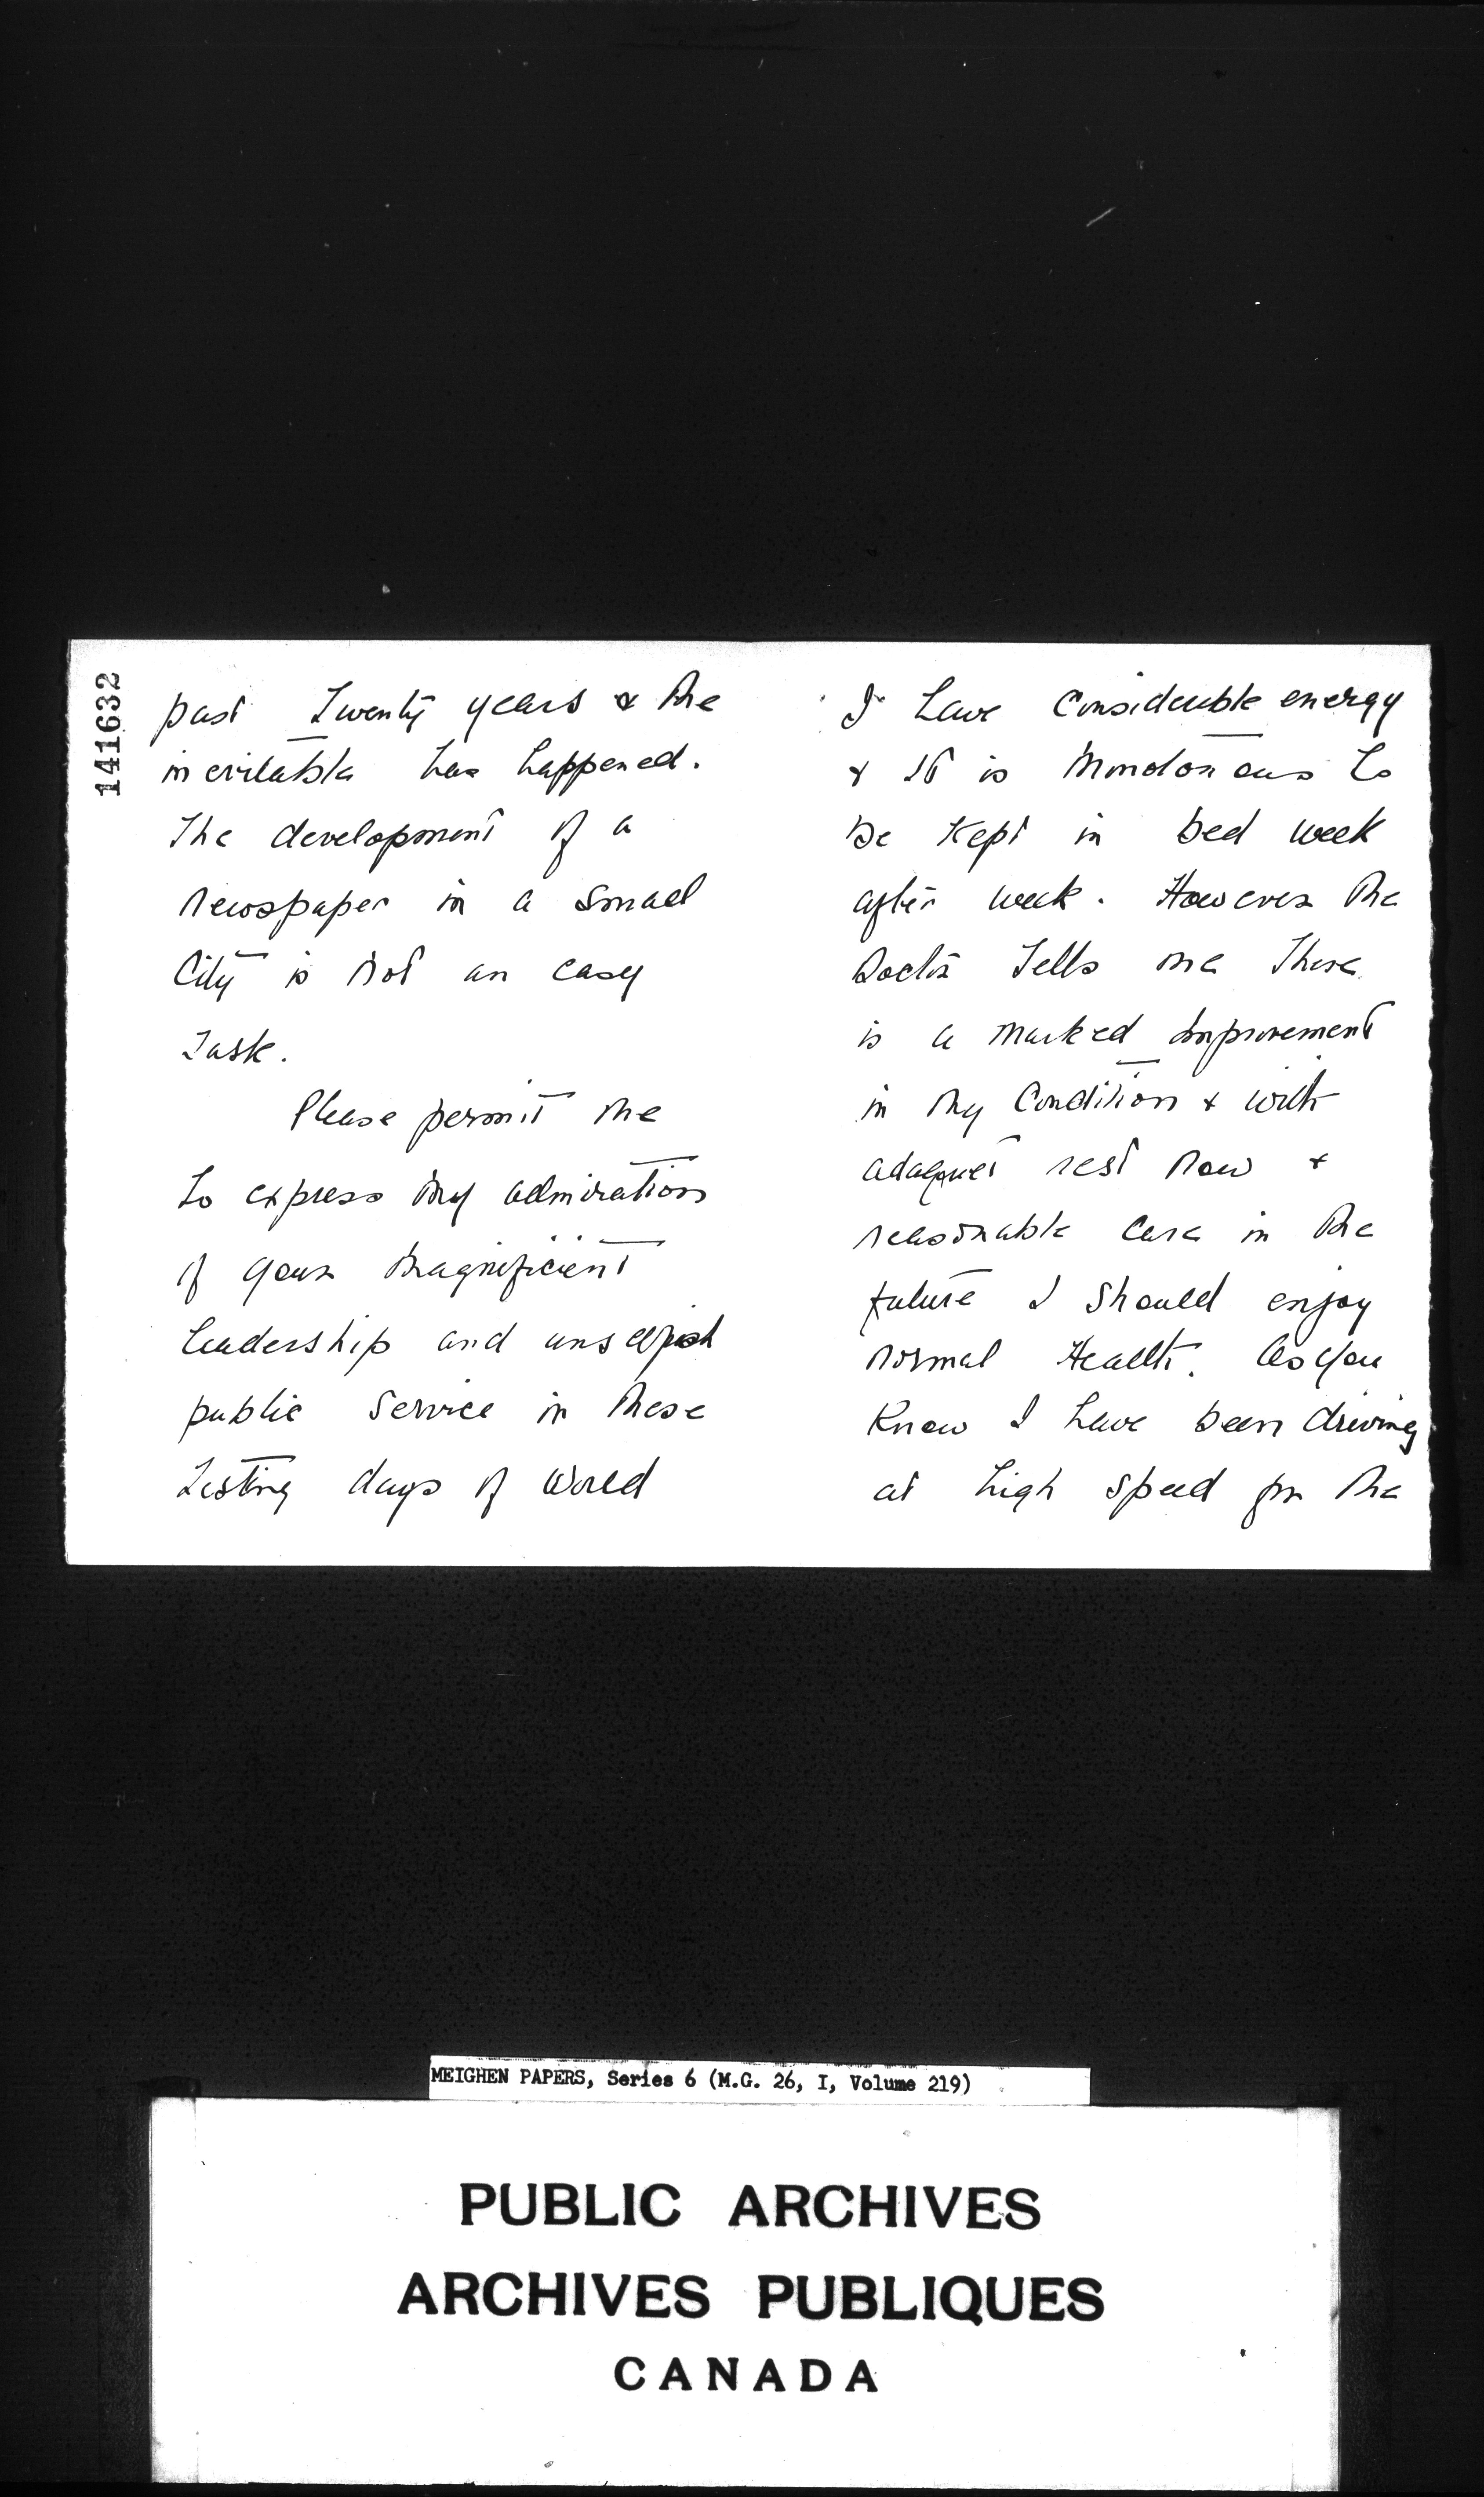 141632
past Twenty years & the
inevitable has happened.
The development of a
newspaper in a small
City is not an easy
Task.
Please permit me
to express my admiration
of your magnificient
leadership and unselfish
public Service in these
testing days of World
I have considerable energy
& It is monotonous to
be Kept in bed week
after week. However the
Doctor Tells me There
is a marked improvement
in my Condition & with
adaquet rest now &
reasonable Care in the
future I should enjoy
normal Health. As you
Know I have been driving
at high speed for the
MEIGHEN PAPERS, Series 6 (M.G. 26, I, Volume 219)
PUBLIC ARCHIVES
ARCHIVES PUBLIQUES
CANADA